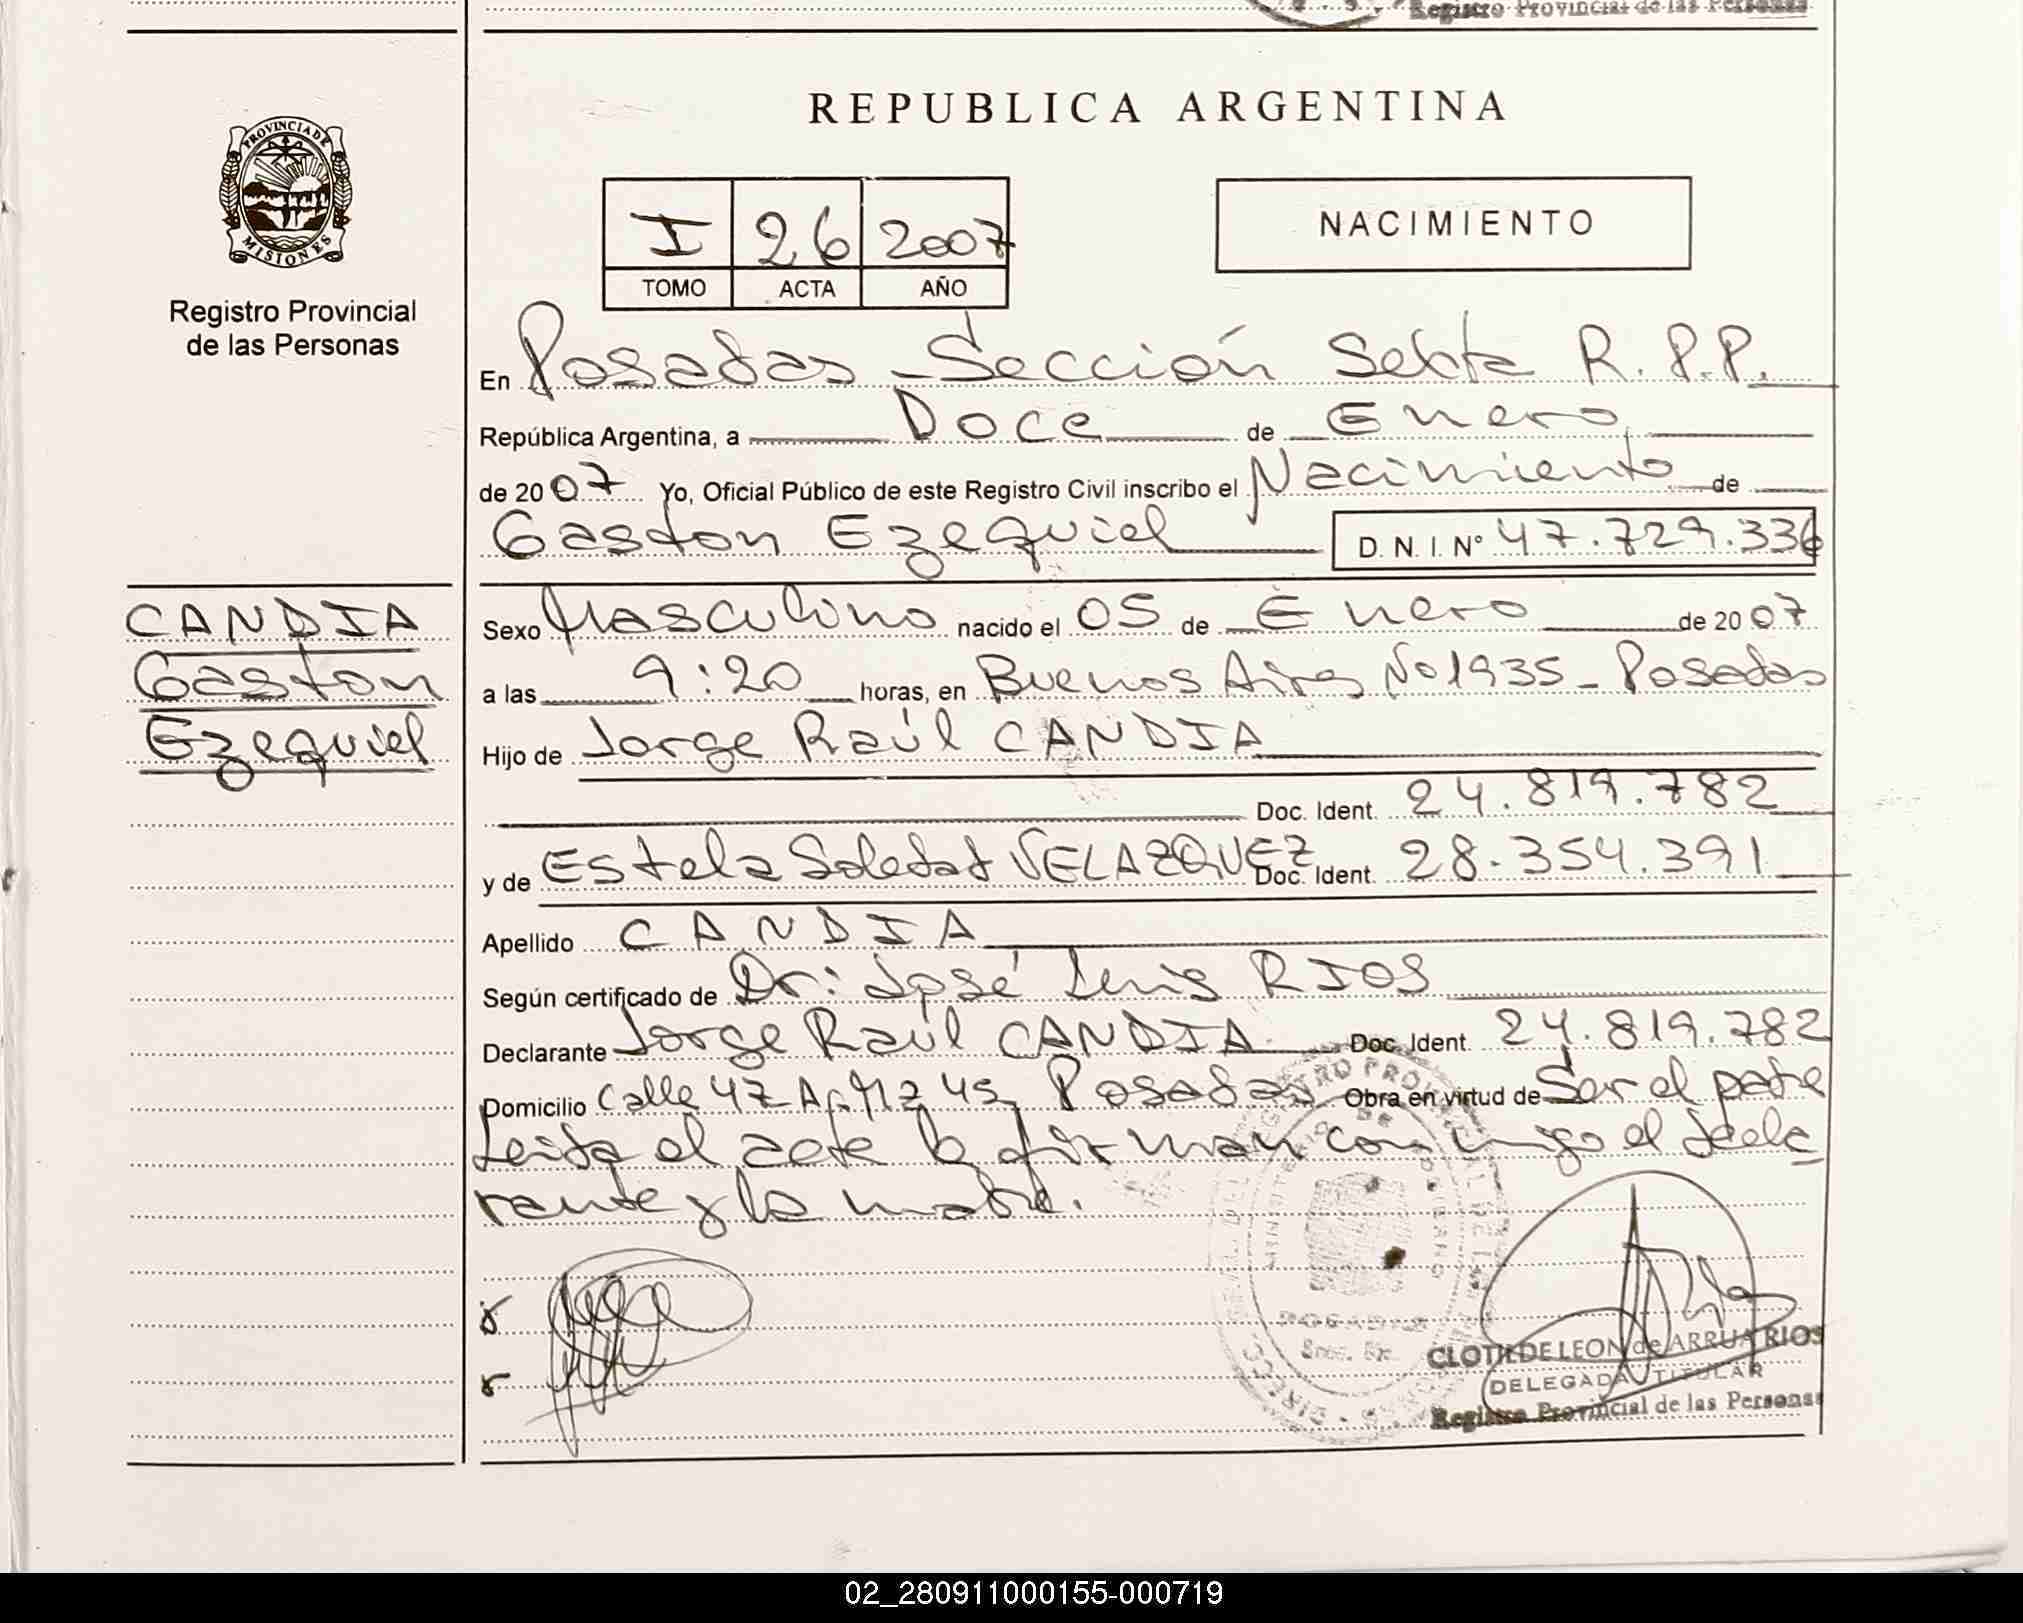 Registro Provincial de las Personas
PROVINCIA DE
MISIONES
Registro Provincial
de las Personas
REPUBLICA ARGENTINA
I 26 2007
TOMO ACTA AÑO
NACIMIENTO
En Posadas - Sección Sexta R.P.P.
República Argentina, a Doce de Enero
de 2007 Yo, Oficial Público de este Registro Civil inscribo el Nacimiento de
Gaston Ezequiel D. N. I. Nº 47.729.336
CANDIA
Gaston
Ezequiel
Sexo Masculino nacido el 05 de Enero de 2007
a las 9:20 horas, en Buenos Aires Nº 1935 - Posadas
Hijo de Jorge Raúl CANDIA
Doc. Ident. 24.819.782
y de Estela Soledad VELAZQUEZ Doc. Ident. 28.354.391
Apellido CANDIA
Según certificado de Dr: José Luis RIOS
Declarante Jorge Raúl CANDIA Doc. Ident. 24.819.782
Domicilio Calle 47 Posadas Obra en virtud de Ser el padre
Leida el acta la firman conmigo el decla
rante y la madre.
CLOTILDE LEON de ARRUA RIOS
DELEGADA TITULAR
Registro Provincial de las Personas
02_280911000155-000719